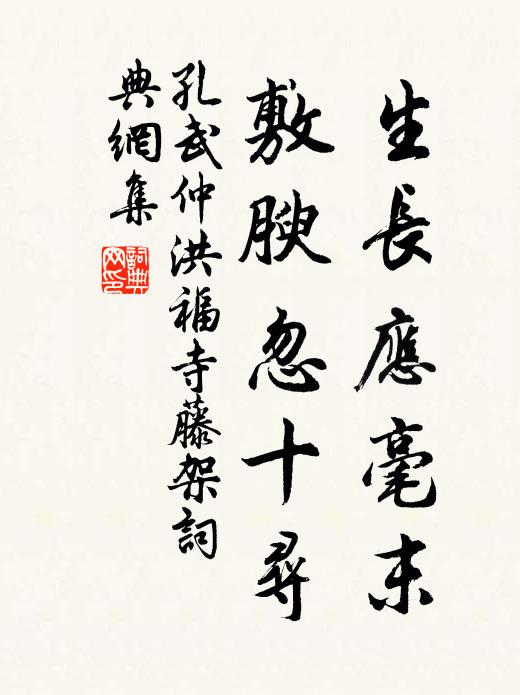 生長應毫末
敷腴忽十尋
孔武仲洪福寺藤架詞
典網集
詞典網印